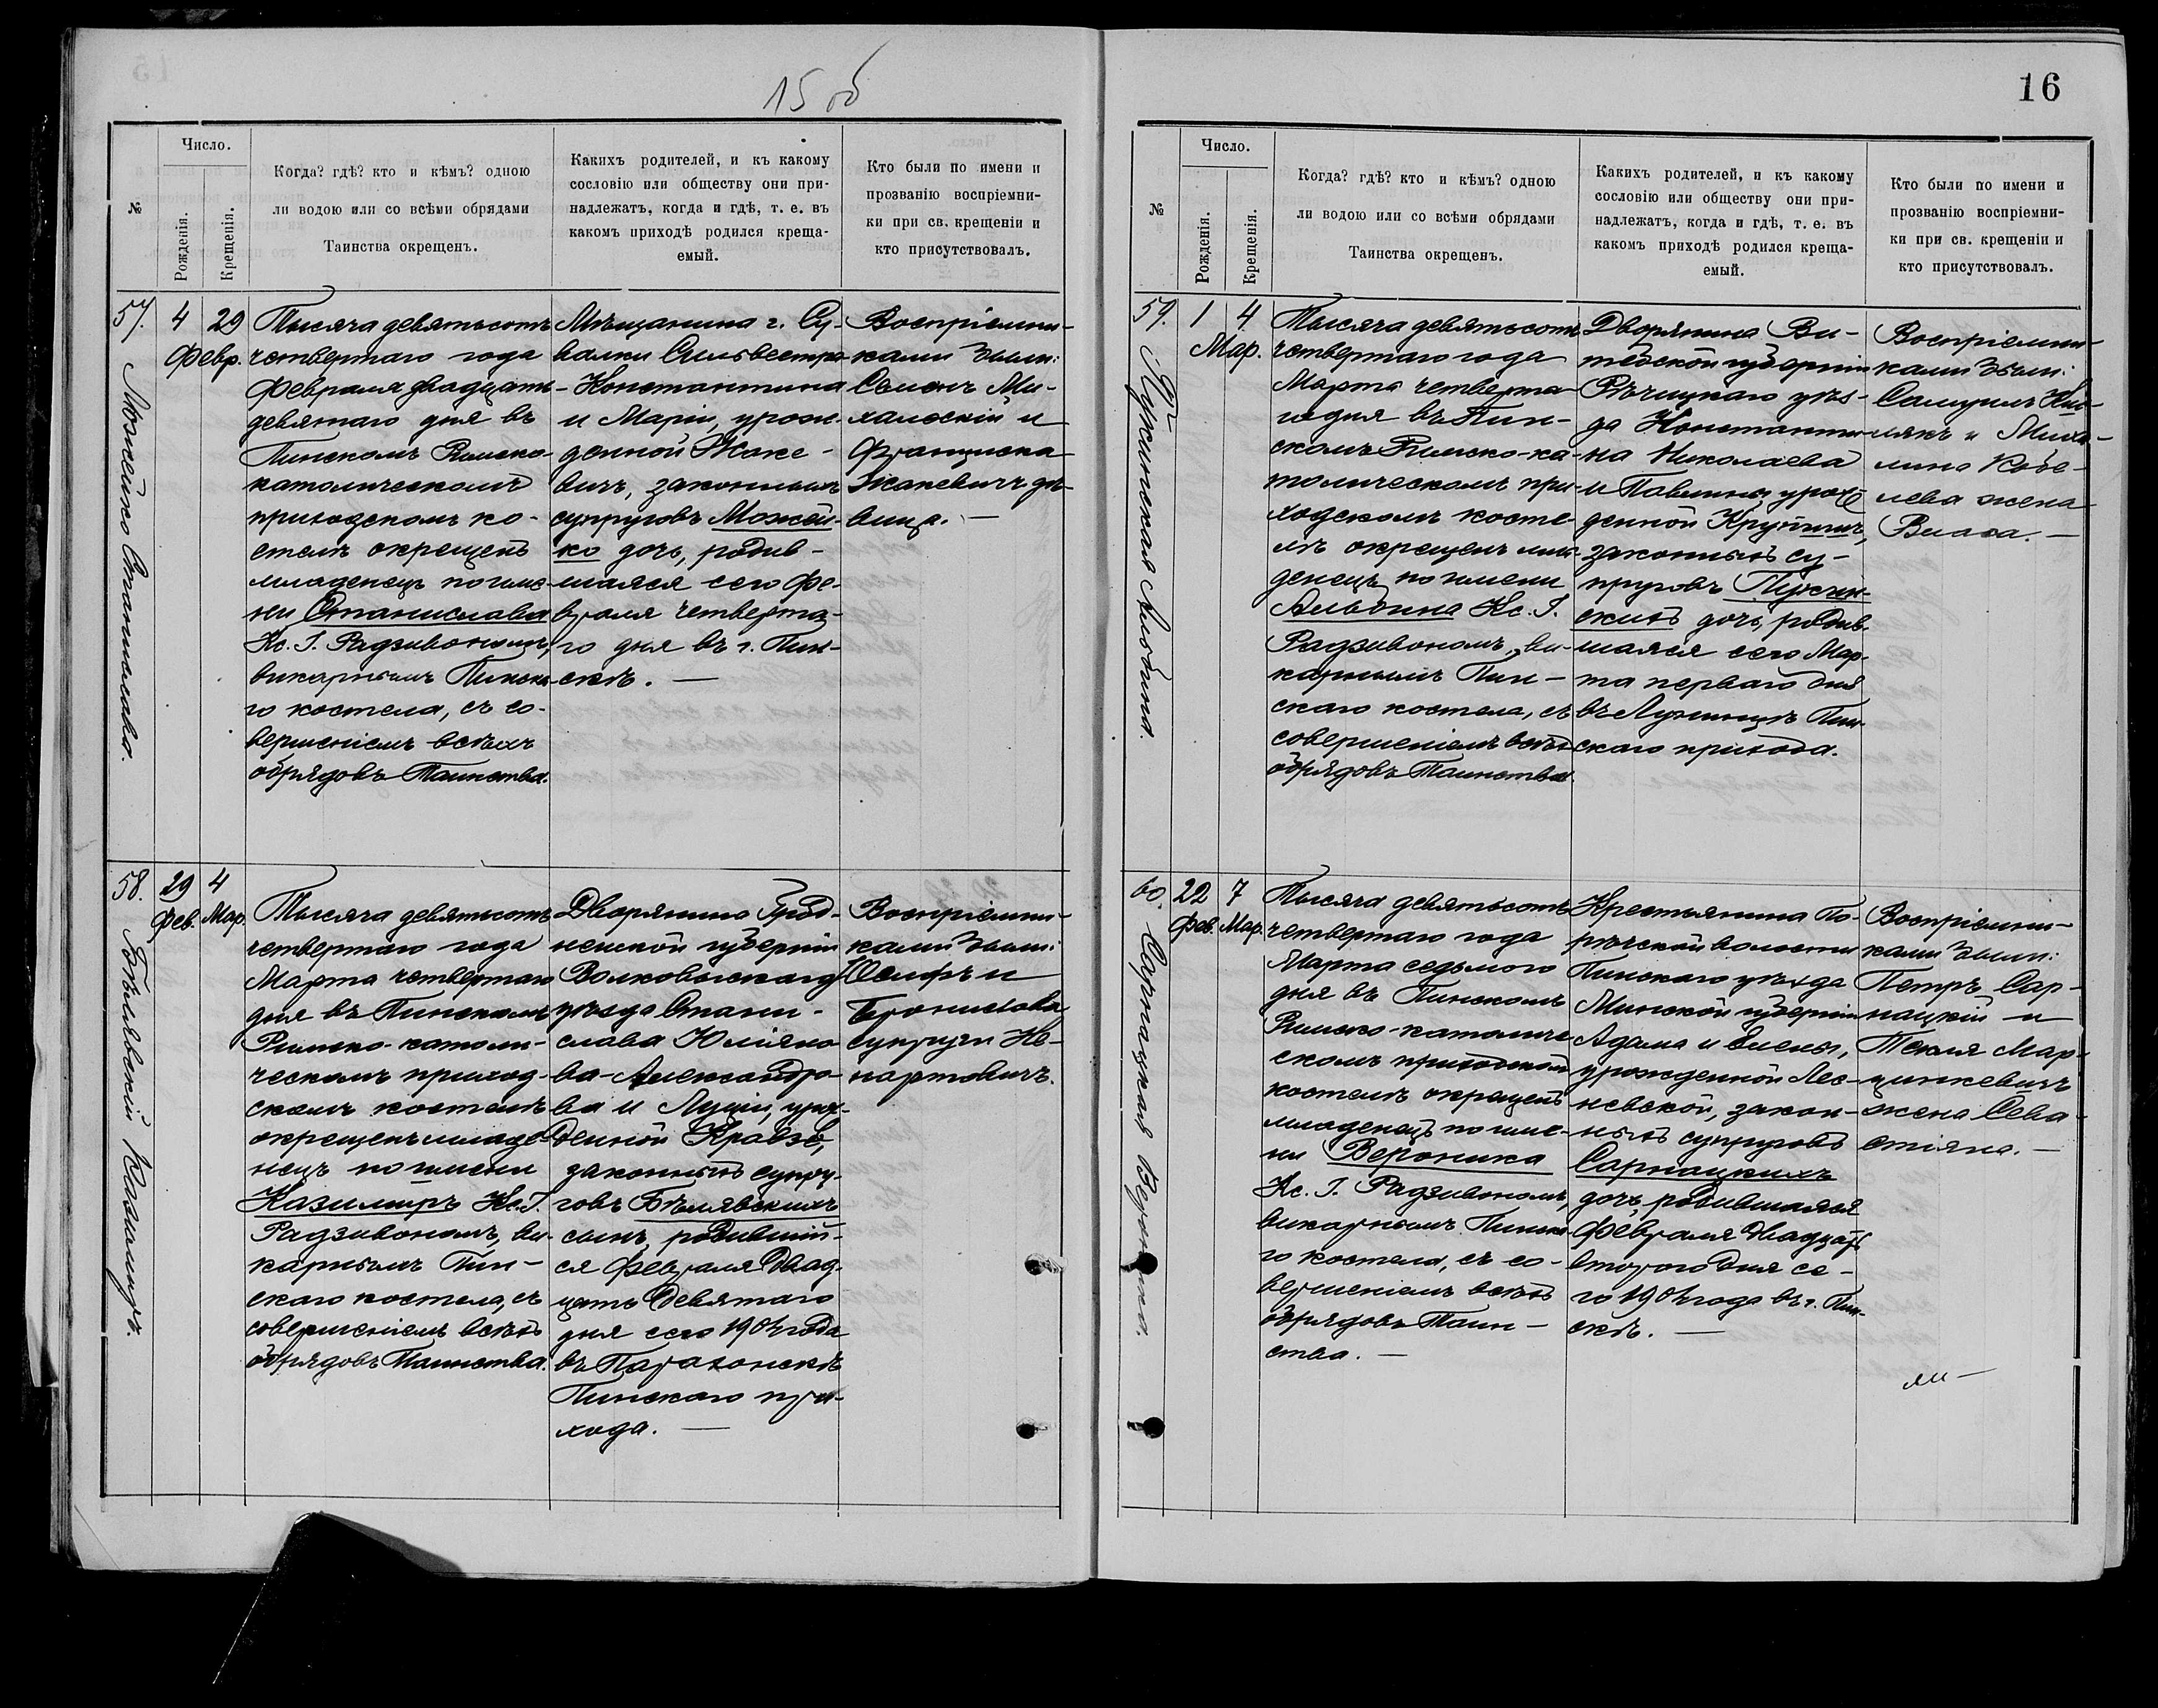 15 об
Число.
№
Рожденія.
Крещенія.
Когда? гдѣ? кто и кѣмъ? одною
ли водою или со всѣми обрядами
Таинства окрещенъ.
Какихъ родителей, и къ какому
сословію или обществу они при-
надлежатъ, когда и гдѣ, т. е. въ
какомъ приходѣ родился креща-
емый.
Кто были по имени и
прозванію воспріемни-
ки при св. крещеніи и
кто присутствовалъ.
57.
Можейко Станислава.
4 29
Февр.
Тысяча девятьсотъ
четвертаго года
Февраля двадцать
девятаго дня въ
Пинскомъ Римско-
католическомъ
приходскомъ ко-
стелѣ окрещенъ
младенецъ по име-
ни Станислава
Кс. І. Радзивономъ,
викарнымъ Пинска-
го костела, съ со-
вершеніемъ всѣхъ
обрядовъ Таинства.
Мѣщанина г. Су-
валки Сильвестра
- Константина
и Маріи, урож-
денной Жаке-
вичъ, законныхъ
супруговъ Можей-
ко дочь, родив-
шаяся сего Фе-
враля четверта-
го дня въ г. Пин-
скѣ. —
Воспріемни-
ками были:
Семенъ Ми-
халоскій и
Франциска
Жакевичъ дѣ-
вица. —
58.
Бѣлявскій Казимиръ.
29 4
Фев. Мар.
Тысяча девятьсотъ
четвертаго года
Марта четвертаго
дня въ Пинскомъ
Римско-католи-
ческомъ приход-
скомъ костелѣ
окрещенъ младе-
нецъ по имени
Казимиръ Кс. І.
Радзивономъ, ви-
карнымъ Пин-
скаго костела, съ
совершеніемъ всѣхъ
обрядовъ Таинства.
Дворянина Грод-
ненской губерніи
Волковыскаго
уѣзда Стани-
слава Юліано-
ва-Александро-
ва и Луціи, урож-
денной Кравзе,
законныхъ супру-
говъ Бѣлявскихъ
сынъ, родившій-
ся Февраля двад-
цать девятаго
дня сего 1904 года
въ Парахонскѣ
Пинскаго при-
хода. —
Воспріемни-
ками были:
Осифъ и
Бронислава
супруги Не-
нартовичъ.
16
Число.
№
Рожденія.
Крещенія.
Когда? гдѣ? кто и кѣмъ? одною
ли водою или со всѣми обрядами
Таинства окрещенъ.
Какихъ родителей, и къ какому
сословію или обществу они при-
надлежатъ, когда и гдѣ, т. е. въ
какомъ приходѣ родился креща-
емый.
Кто были по имени и
прозванію воспріемни-
ки при св. крещеніи и
кто присутствовалъ.
59.
Пужинская Альбина.
1 4
Мар.
Тысяча девятьсотъ
четвертаго года
Марта четверта-
го дня въ Пин-
скомъ Римско-ка-
толическомъ при-
ходскомъ косте-
лѣ окрещенъ мла-
денецъ по имени
Альбина Кс. І.
Радзивономъ, ви-
карнымъ Пин-
скаго костела, съ
совершеніемъ всѣхъ
обрядовъ Таинства.
Дворянина Ви-
тебской губерніи
Рѣчицкаго уѣз-
да Константи-
на Николаева
и Павлины, урож-
денной
законныхъ су-
пруговъ Пужин-
скихъ дочь, родив-
шаяся сего Мар-
та перваго дня
въ Лунинцѣ Пин-
скаго прихода.
Воспріемни-
ками были:
Самуилъ
и Миха-
лина Кобе-
лева жена
Власа. —
60
Сарнацкая Вероника.
22 7
Фев. Мар.
Тысяча девятьсотъ
четвертаго года
Марта седьмого
дня въ Пинскомъ
Римско-католиче-
скомъ приходскомъ
костелѣ окрещенъ
младенецъ по име-
ни Вероника
Кс. І. Радзивономъ,
викарнымъ Пинска-
го костела, съ со-
вершеніемъ всѣхъ
обрядовъ Таин-
ства. —
Крестьянина По-
рѣчской волости
Пинскаго уѣзда
Минской губерніи
Адама и Елены,
урожденной Лес-
невской, закон-
ныхъ супруговъ
Сарнацкихъ
дочь, родившаяся
Февраля двадцать
второго дня се-
го 1904 года въ г. Пин-
скѣ. —
Воспріемни-
ками были:
Петръ Сар-
нацкій и
Текля Мар-
цинкевичъ
жена Сева-
стіяна. —